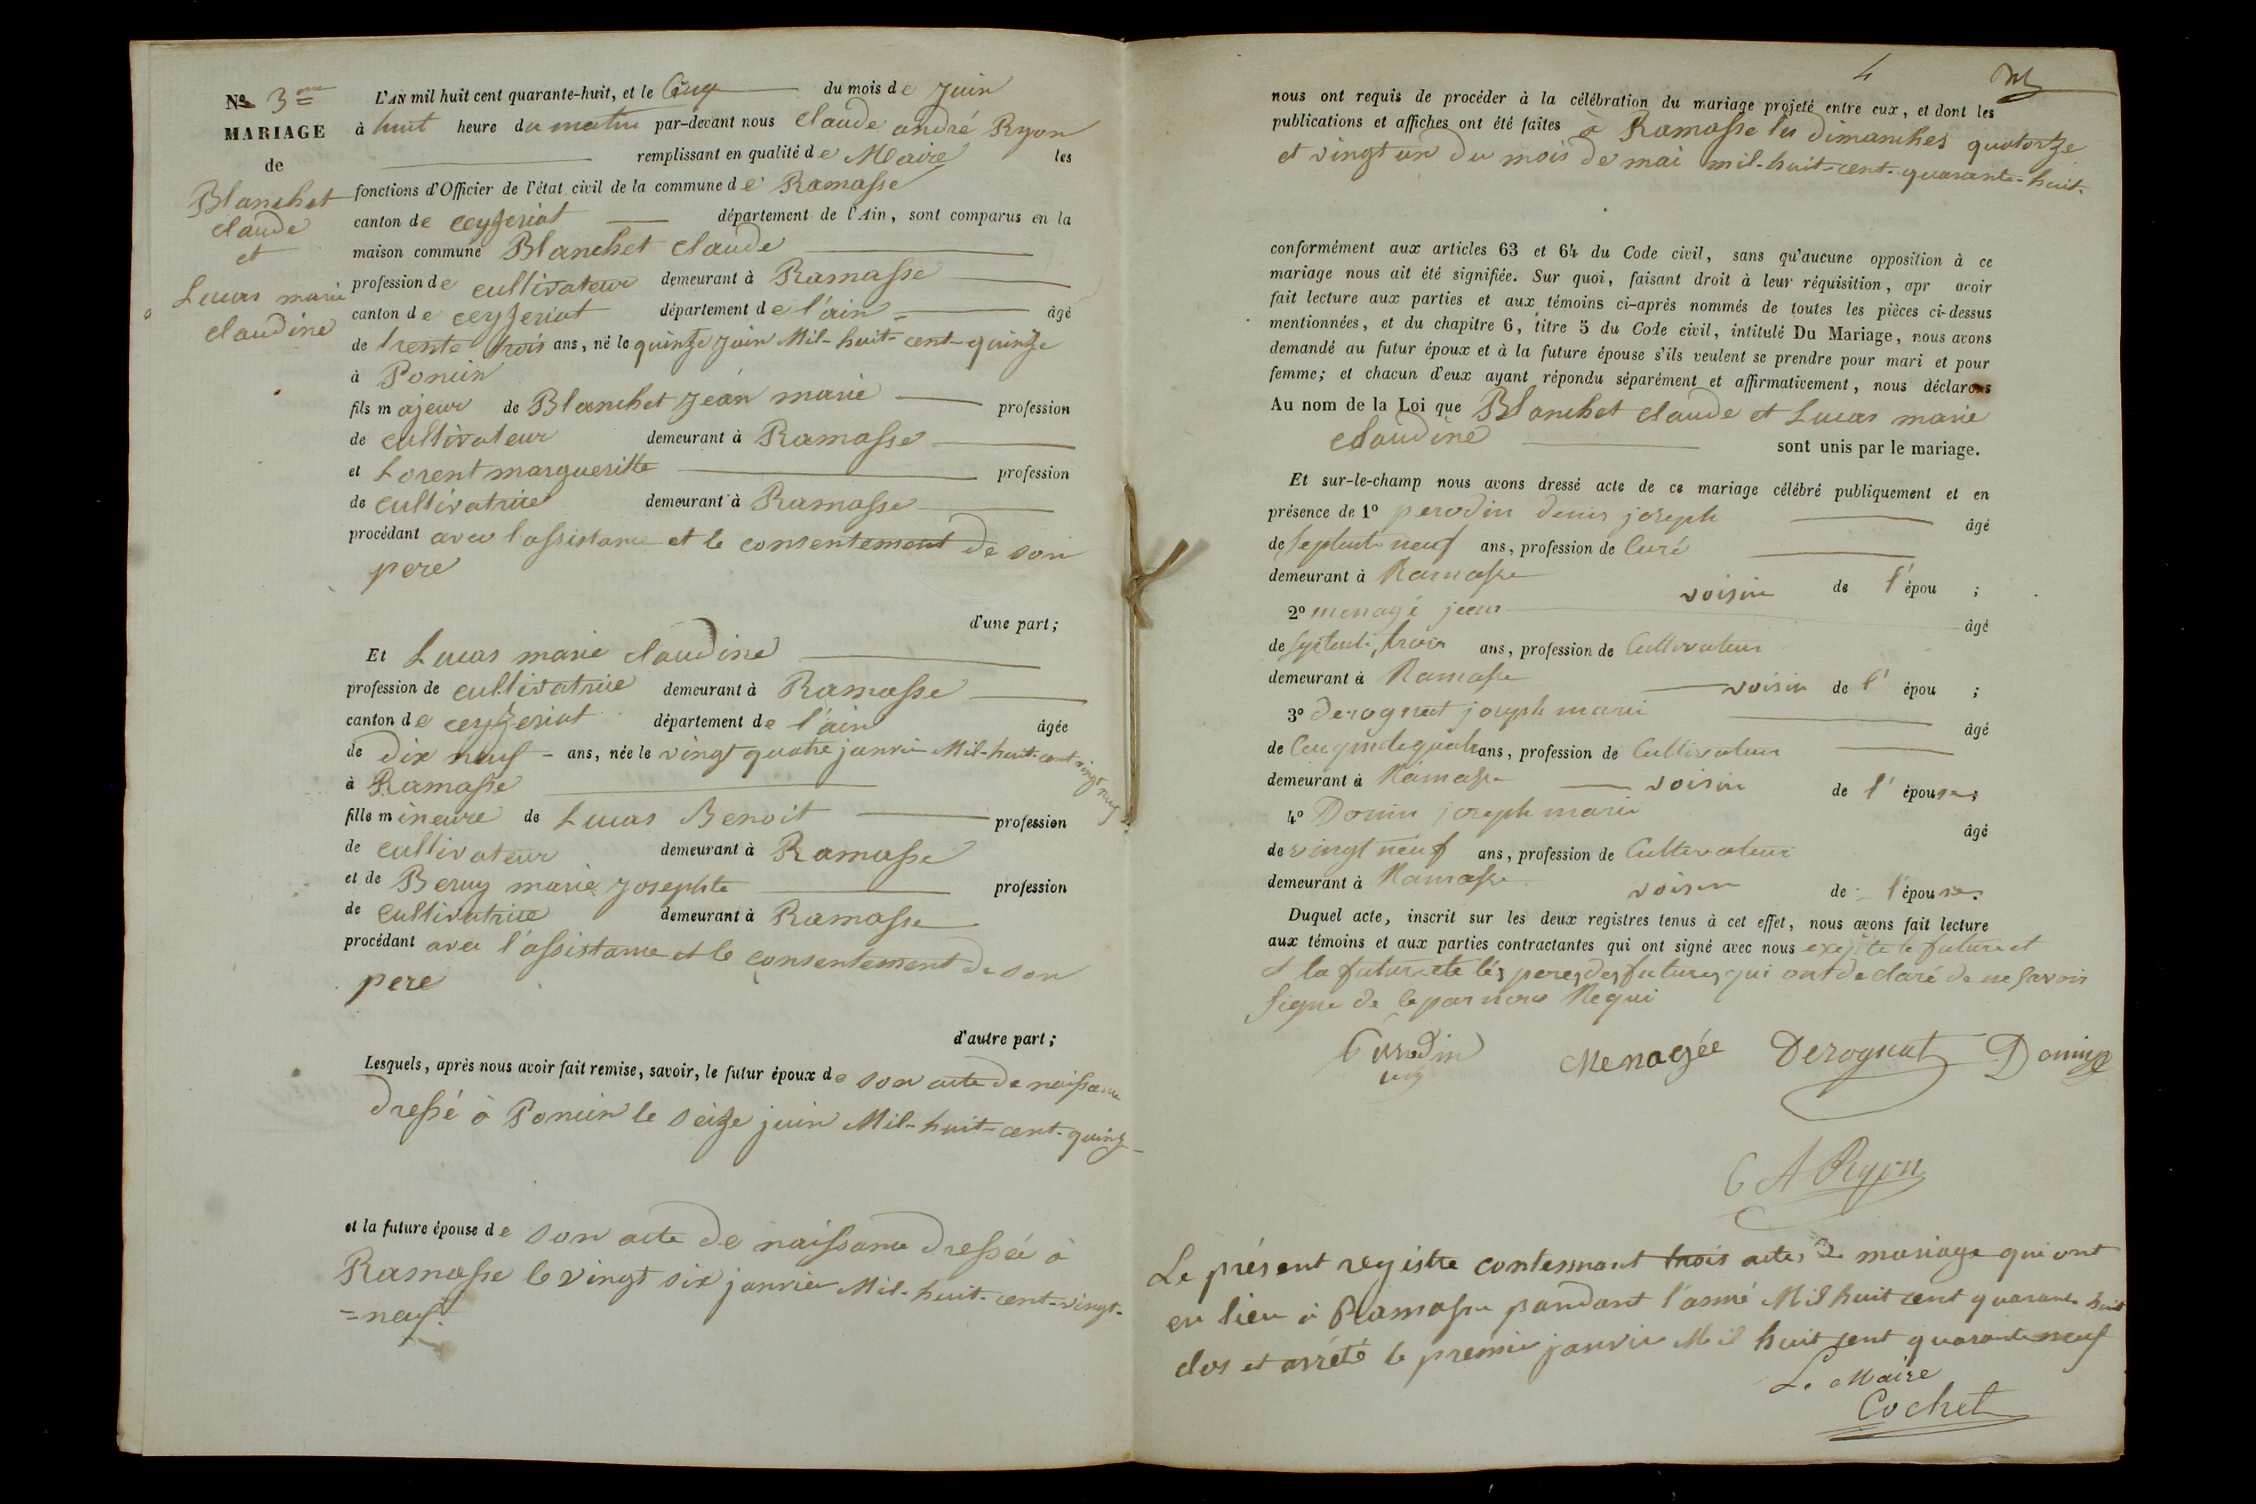 No 3me
MARIAGE
de
Blanchet
claude
et
Lucas marie
claudine
L'AN mil huit cent quarante-huit, et le Cinq du mois de juin
à huit heure du matin par-devant nous claude andré Ryon
remplissant en qualité de Maire les
fonctions d'Officier de l'état civil de la commune de Ramasse
canton de ceyzeriat département de l'Ain, sont comparus en la
maison commune Blanchet claude
profession de cultivateur demeurant à Ramasse
canton de ceyzeriat département de l'ain âgé
de trente trois ans, né le quinze juin Mil-huit-cent-quinze
à Poncin
fils majeur de Blanchet jean marie profession
de cultivateur demeurant à Ramasse
et Lorent margueritte profession
de cultivatrice demeurant à Ramasse
procédant avec l'assistance et le consentement de son
pere
d'une part;
Et Lucas marie claudine
profession de cultivatrice demeurant à Ramasse
canton de ceyzeriat département de l'ain âgée
de dix neuf = ans, née le vingt quatre janvier Mil-huit-cent vingt neuf
à Ramasse
fille mineure de Lucas Benoit profession
de cultivateur demeurant à Ramasse
et de Beruy marie josephte profession
de cultivatrice demeurant à Ramasse
procédant avec l'assistance et le consentement de son
pere
d'autre part;
Lesquels, après nous avoir fait remise, savoir, le futur époux de son acte de naissance
dressé à Poncin le seize juin Mil-huit-cent-quinze
et la future épouse de son acte de naissance dressée à
Ramasse le vingt six janvier Mil-huit-cent-vingt-
=neuf.
4
nous ont requis de procéder à la célébration du mariage projeté entre eux, et dont les
publications et affiches ont été faites à Ramasse les dimanches quatorze
et vingt un du mois de mai mil-huit-cent-quarante-huit.
conformément aux articles 63 et 64 du Code civil, sans qu'aucune opposition à ce
mariage nous ait été signifiée. Sur quoi, faisant droit à leur réquisition, apr avoir
fait lecture aux parties et aux témoins ci-après nommés de toutes les pièces ci-dessus
mentionnées, et du chapitre 6, titre 5 du Code civil, intitulé Du Mariage, nous avons
demandé au futur époux et à la future épouse s'ils veulent se prendre pour mari et pour
femme; et chacun d'eux ayant répondu séparément et affirmativement, nous déclarons
Au nom de la Loi que Blanchet claude et Lucas marie
claudine sont unis par le mariage.
Et sur-le-champ nous avons dressé acte de ce mariage célébré publiquement et en
présence de 1o perodin denis joseph âgé
de septente neuf ans, profession de Curé
demeurant à Ramasse voisin de l'épou ;
2o menagé jean âgé
de septente, trois ans, profession de Cultivateur
demeurant à Ramasse voisin de l' épou ;
3o derognat joseph marie âgé
de Cinquante quatre ans, profession de Cultivateur
demeurant à Ramasse voisin de l' épouse;
4o Donin joseph marie âgé
de vingt neuf ans, profession de Cultivateur
demeurant à Ramasse voisin de l'épouse.
Duquel acte, inscrit sur les deux registres tenus à cet effet, nous avons fait lecture
aux témoins et aux parties contractantes qui ont signé avec nous le future et
et la future et les peres des futures qui ont declaré de ne savoir
signe de le par nous Requi
Perodin
Menagée Derognat Donin
C A Ryon
Le présent registre contennant trois actes de mariage qui ont
eu lieu à Ramasse pandant l'anné Mil huit cent quarante huit
clos et arrété le premier janvier Mil huit cent quarante neuf
Le Maire
Cochet